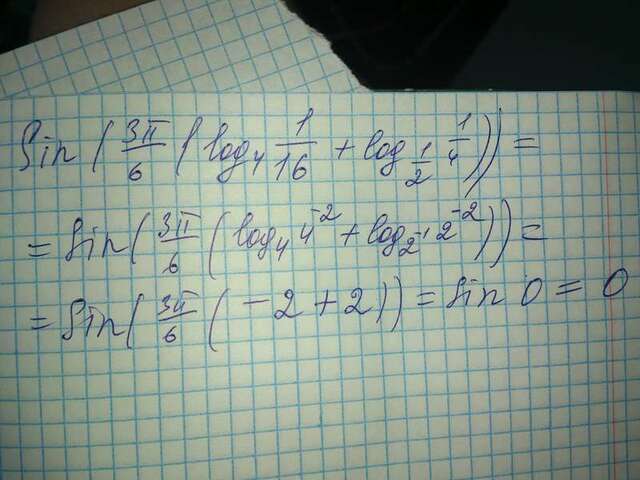 Sin(3π/6(log₄ 1/16 + log_{1/2} 1/4)) =
= Sin(3π/6(log₄ 4⁻² + log_{2⁻¹} 2⁻²)) =
= Sin(3π/6(-2+2)) = Sin 0 = 0